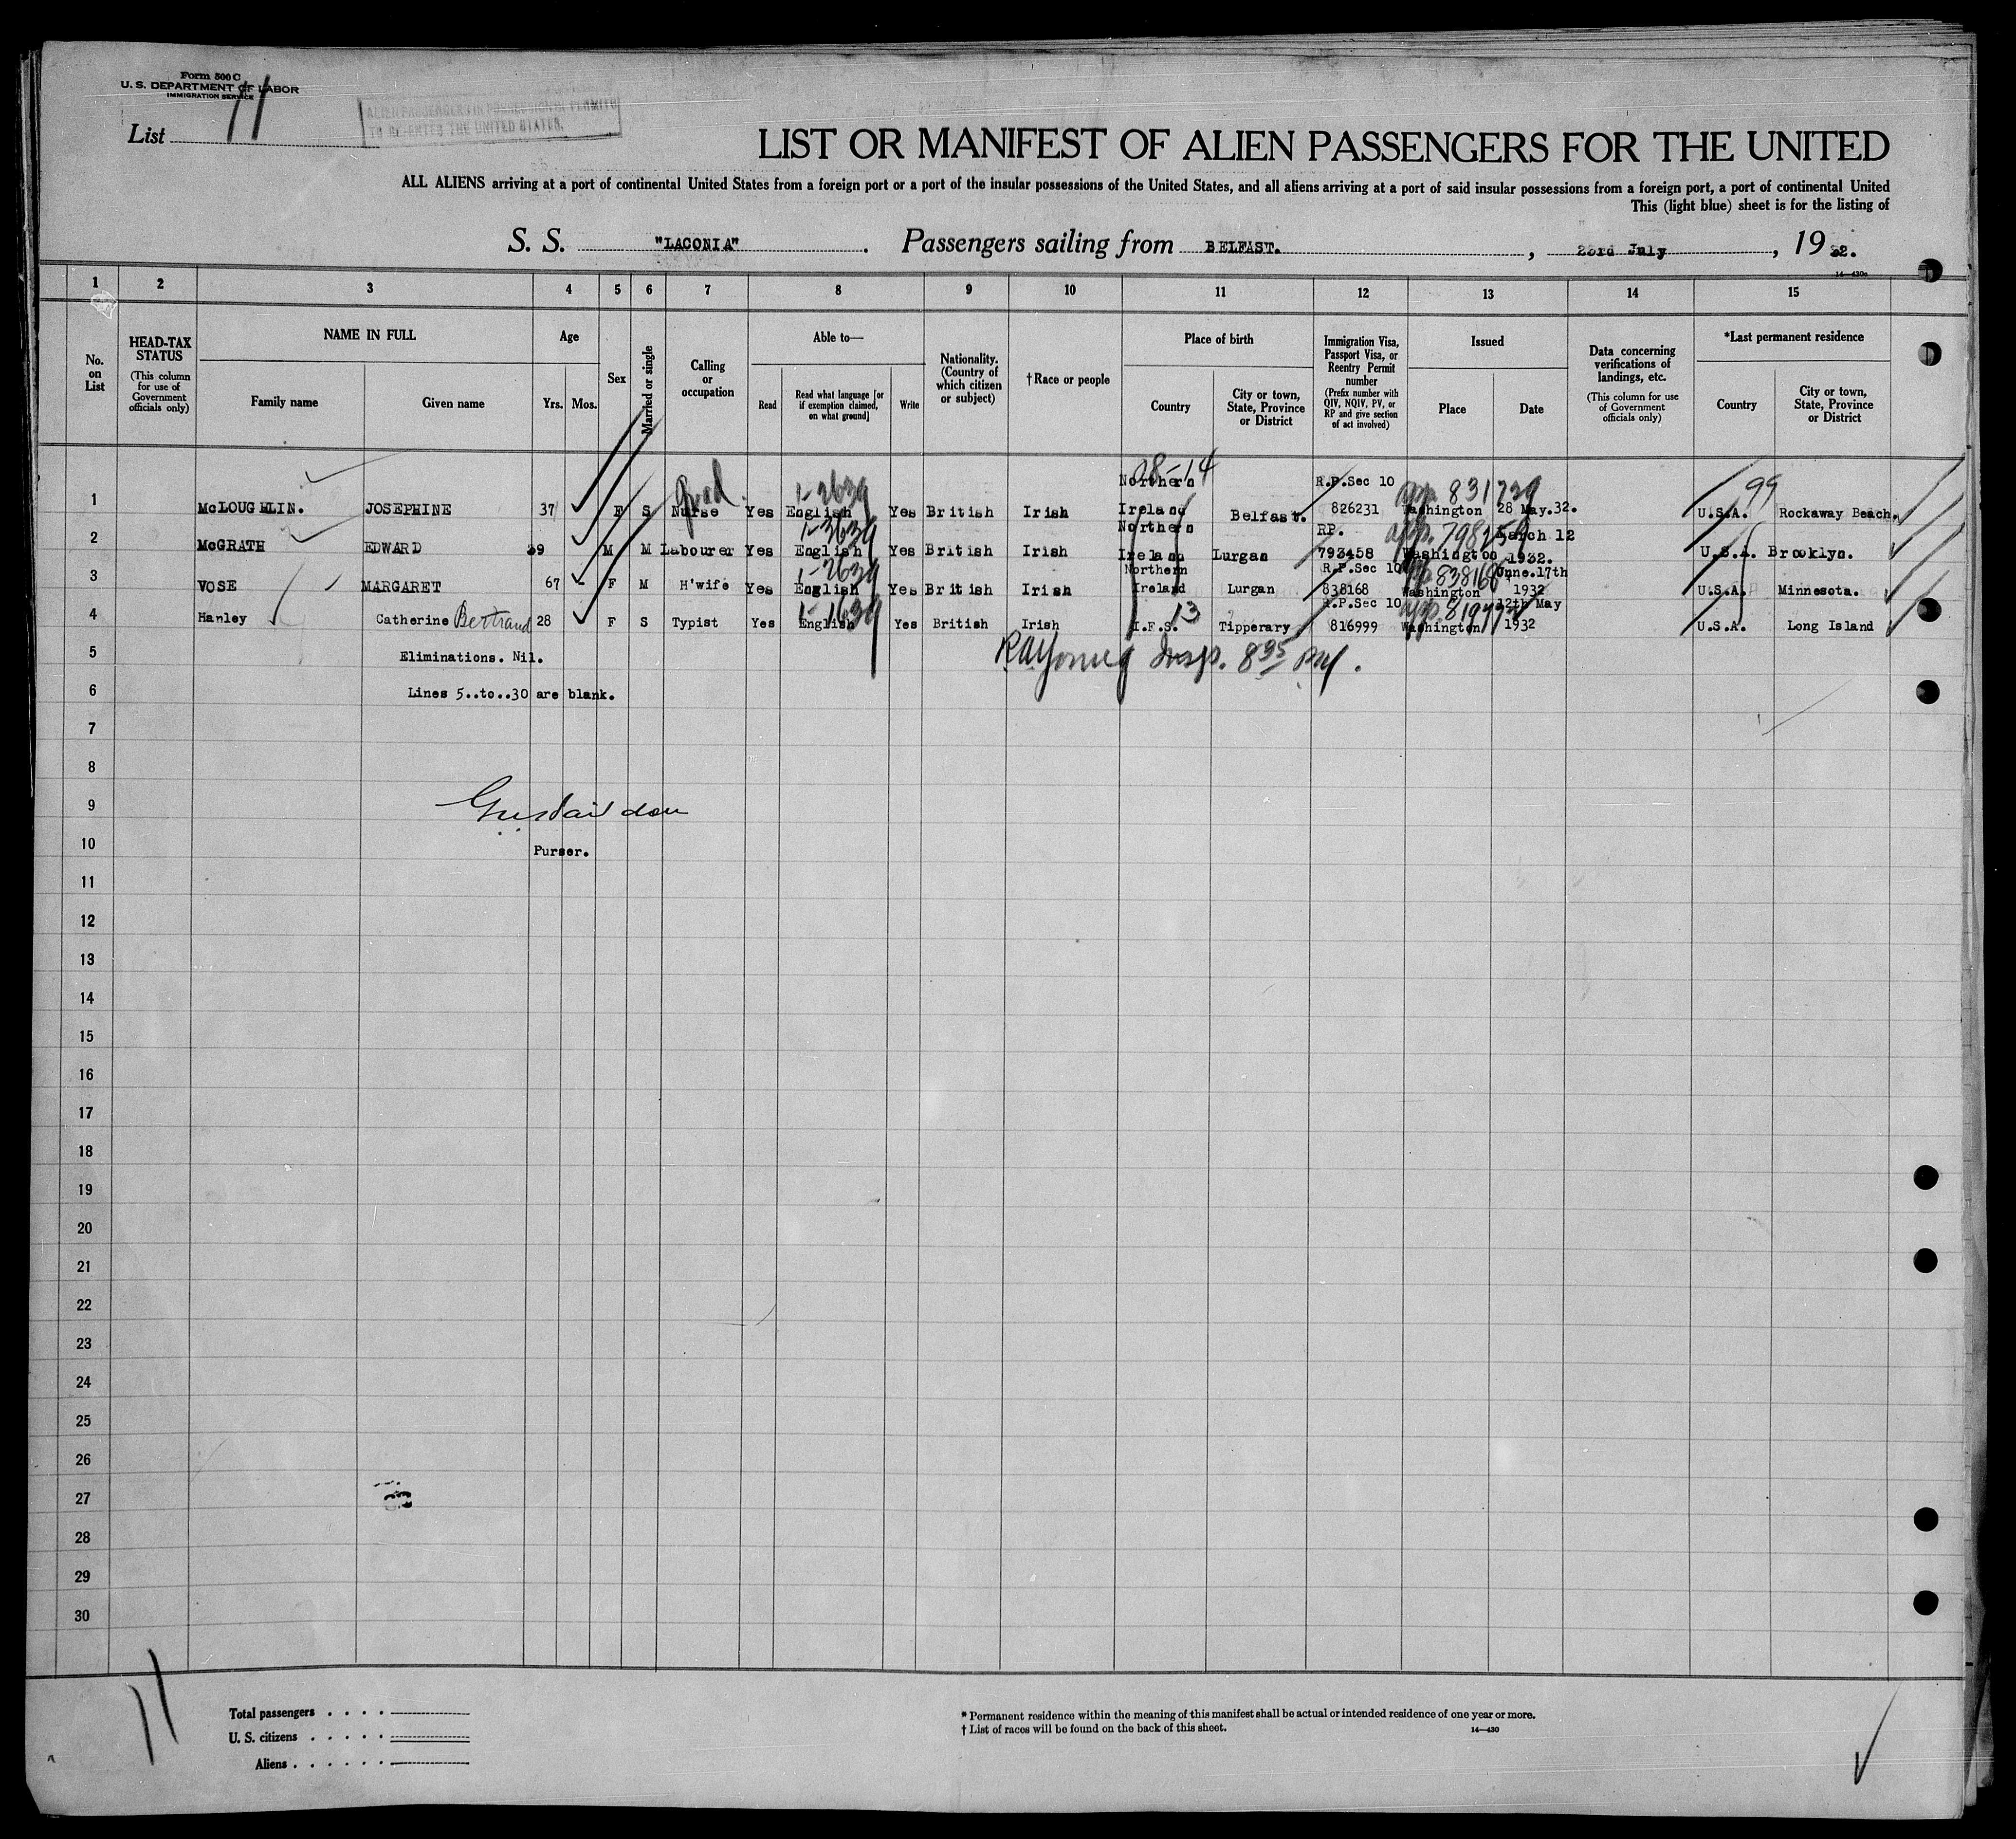 Form 500 C
U. S. DEPARTMENT OF LABOR
IMMIGRATION SERVICE
List 11
ALIEN PASSENGER IN POSSESSION OF PERMITS
TO RE-ENTER THE UNITED STATES.
LIST OR MANIFEST OF ALIEN PASSENGERS FOR THE UNITED
ALL ALIENS arriving at a port of continental United States from a foreign port or a port of the insular possessions of the United States, and all aliens arriving at a port of said insular possessions from a foreign port, a port of continental United
This (light blue) sheet is for the listing of
S. S. "LACONIA". Passengers sailing from BELFAST. , 23rd July , 1932.
14—430a
1 2 3 4 5 6 7 8 9 10 11 12 13 14 15
No. on List
HEAD-TAX STATUS (This column for use of Government officials only)
NAME IN FULL
Family name Given name
Age
Yrs. Mos.
Sex
Married or single
Calling or occupation
Able to—
Read Read what language [or if exemption claimed, on what ground] Write
Nationality. (Country of which citizen or subject)
†Race or people
Place of birth
Country City or town, State, Province or District
Immigration Visa, Passport Visa, or Reentry Permit number (Prefix number with QIV, NQIV, PV, or RP and give section of act involved)
Issued
Place Date
Data concerning verifications of landings, etc. (This column for use of Government officials only)
*Last permanent residence
Country City or town, State, Province or District
08-14
1 McLOUGHLIN. JOSEPHINE 37 F S Nurse Yes English Yes British Irish Northern Ireland Belfast. R.P.Sec 10 826231 831729 Washington 28 May.32. 99 U.S.A. Rockaway Beach.
2 McGRATH EDWARD 39 M M Labourer Yes English Yes British Irish Northern Ireland Lurgan RP. 793458 Washington March 12 1932. U.S.A. Brooklyn.
3 VOSE MARGARET 67 F M H'wife Yes English Yes British Irish Northern Ireland Lurgan R.P.Sec 10 838168 838168 Washington June.17th 1932 U.S.A. Minnesota.
4 Hanley Catherine Bertrand 28 F S Typist Yes English Yes British Irish I.F.S. 13 Tipperary R.P.Sec 10 816999 Washington 12th May 1932 U.S.A. Long Island
5 Eliminations. Nil.
6 Lines 5..to..30 are blank.
7
8
9
10 Purser.
11
12
13
14
15
16
17
18
19
20
21
22
23
24
25
26
27
28
29
30
11
Total passengers
U. S. citizens
Aliens
* Permanent residence within the meaning of this manifest shall be actual or intended residence of one year or more.
† List of races will be found on the back of this sheet.
14—430